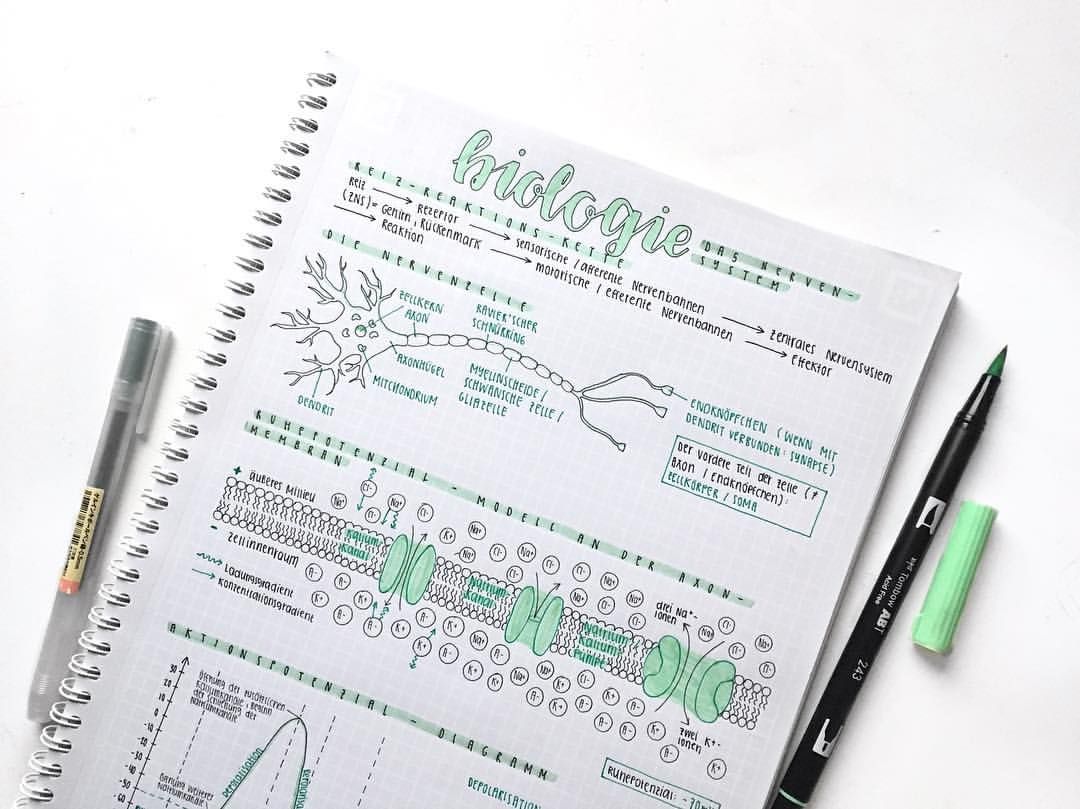 biologie
DAS NERVEN-
SYSTEM
REIZ-REAKTIONS-KETTE
Reiz → Rezeptor → sensorische / afferente Nervenbahnen → zentrales Nervensystem
(ZNS) = Gehirn, Rückenmark → motorische / efferente Nervenbahnen → Effektor
→ Reaktion
DIE NERVENZELLE
ZELLKERN
AXON
RANVIER'SCHER
SCHNÜRRING
AXONHÜGEL
MITOCHONDRIUM
MYELINSCHEIDE/
SCHWANSCHE ZELLE/
GLIAZELLE
DENDRIT
ENDKNÖPFCHEN (WENN MIT
DENDRIT VERBUNDEN: SYNAPSE)
Der vordere Teil der Zelle (≠
Axon / Endknöpfchen):
ZELLKÖRPER / SOMA
RUHEPOTENZIAL - MODELL AN DER AXON-
MEMBRAN
+ äußeres Milieu
- Zellinnenraum
Ladungsgradient
Konzentrationsgradient
Kalium
Kanal
Natrium
Kanal
Natrium/
Kalium
Pumpe
drei Na+-
Ionen
zwei K+-
Ionen
Cl- Na+ K+ A-
AKTIONSPOTENZIAL - DIAGRAMM
30
20
10
0
-10
-20
-30
-40
-50
-60
Öffnung der zusätzlichen
Kaliumkanäle, Beginn
der Schließung der
Natriumkanäle
Öffnung weiterer
Natriumkanäle
Depolarisation
DEPOLARISATION
Ruhepotenzial: -70
Tombow ABT
Acid Free
243